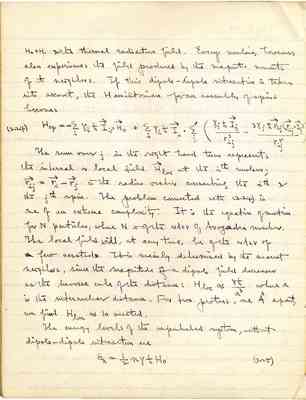 thermal radiation field. Every nucleus, however
also experiences the field produced by the magnetic moments
of its neighbors. If this dipole-dipole interaction is taken
into account, the Hamiltonian for an assembly of spins
becomes
The sum over j in the right hand term represents
the internal or local field H_loc at the i-th nucleus;
is the radius vector connecting the i-th &
the j-th spin. The problem connected with is
one of an extreme complexity. It is the equation of motion
for N particles, where N is of the order of Avogadro's number.
The local field will, at any time, be of the order of
a few oersteds. This is mainly determined by the nearest
neighbors, since the magnitude of a dipole field decreases
as the inverse cube of the distance. H_loc where a
is the internuclear distance. For two protons, Å apart,
we find H_loc oersted.
The energy levels of the unperturbed system, without
dipole-dipole interaction are